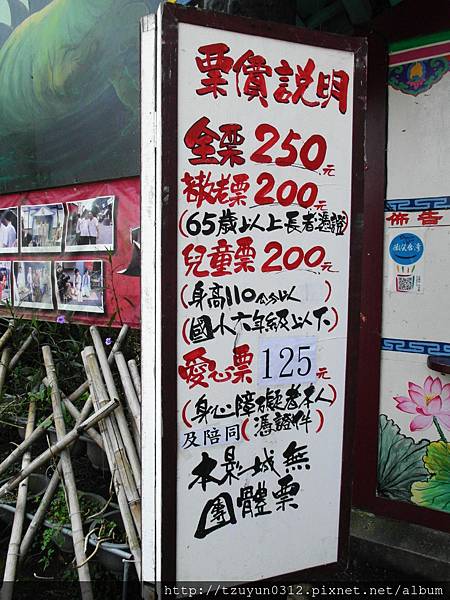 票價說明
全票250元
敬老票200元
(65歲以上長者憑證)
兒童票200元
(身高110公分以 )
(國小六年級以下)
愛心票125元
(身心障礙者本人
及陪同(憑證件)
本影城無
團體票
佈告
微笑台灣
http://tzuyun0312.pixnet.net/album